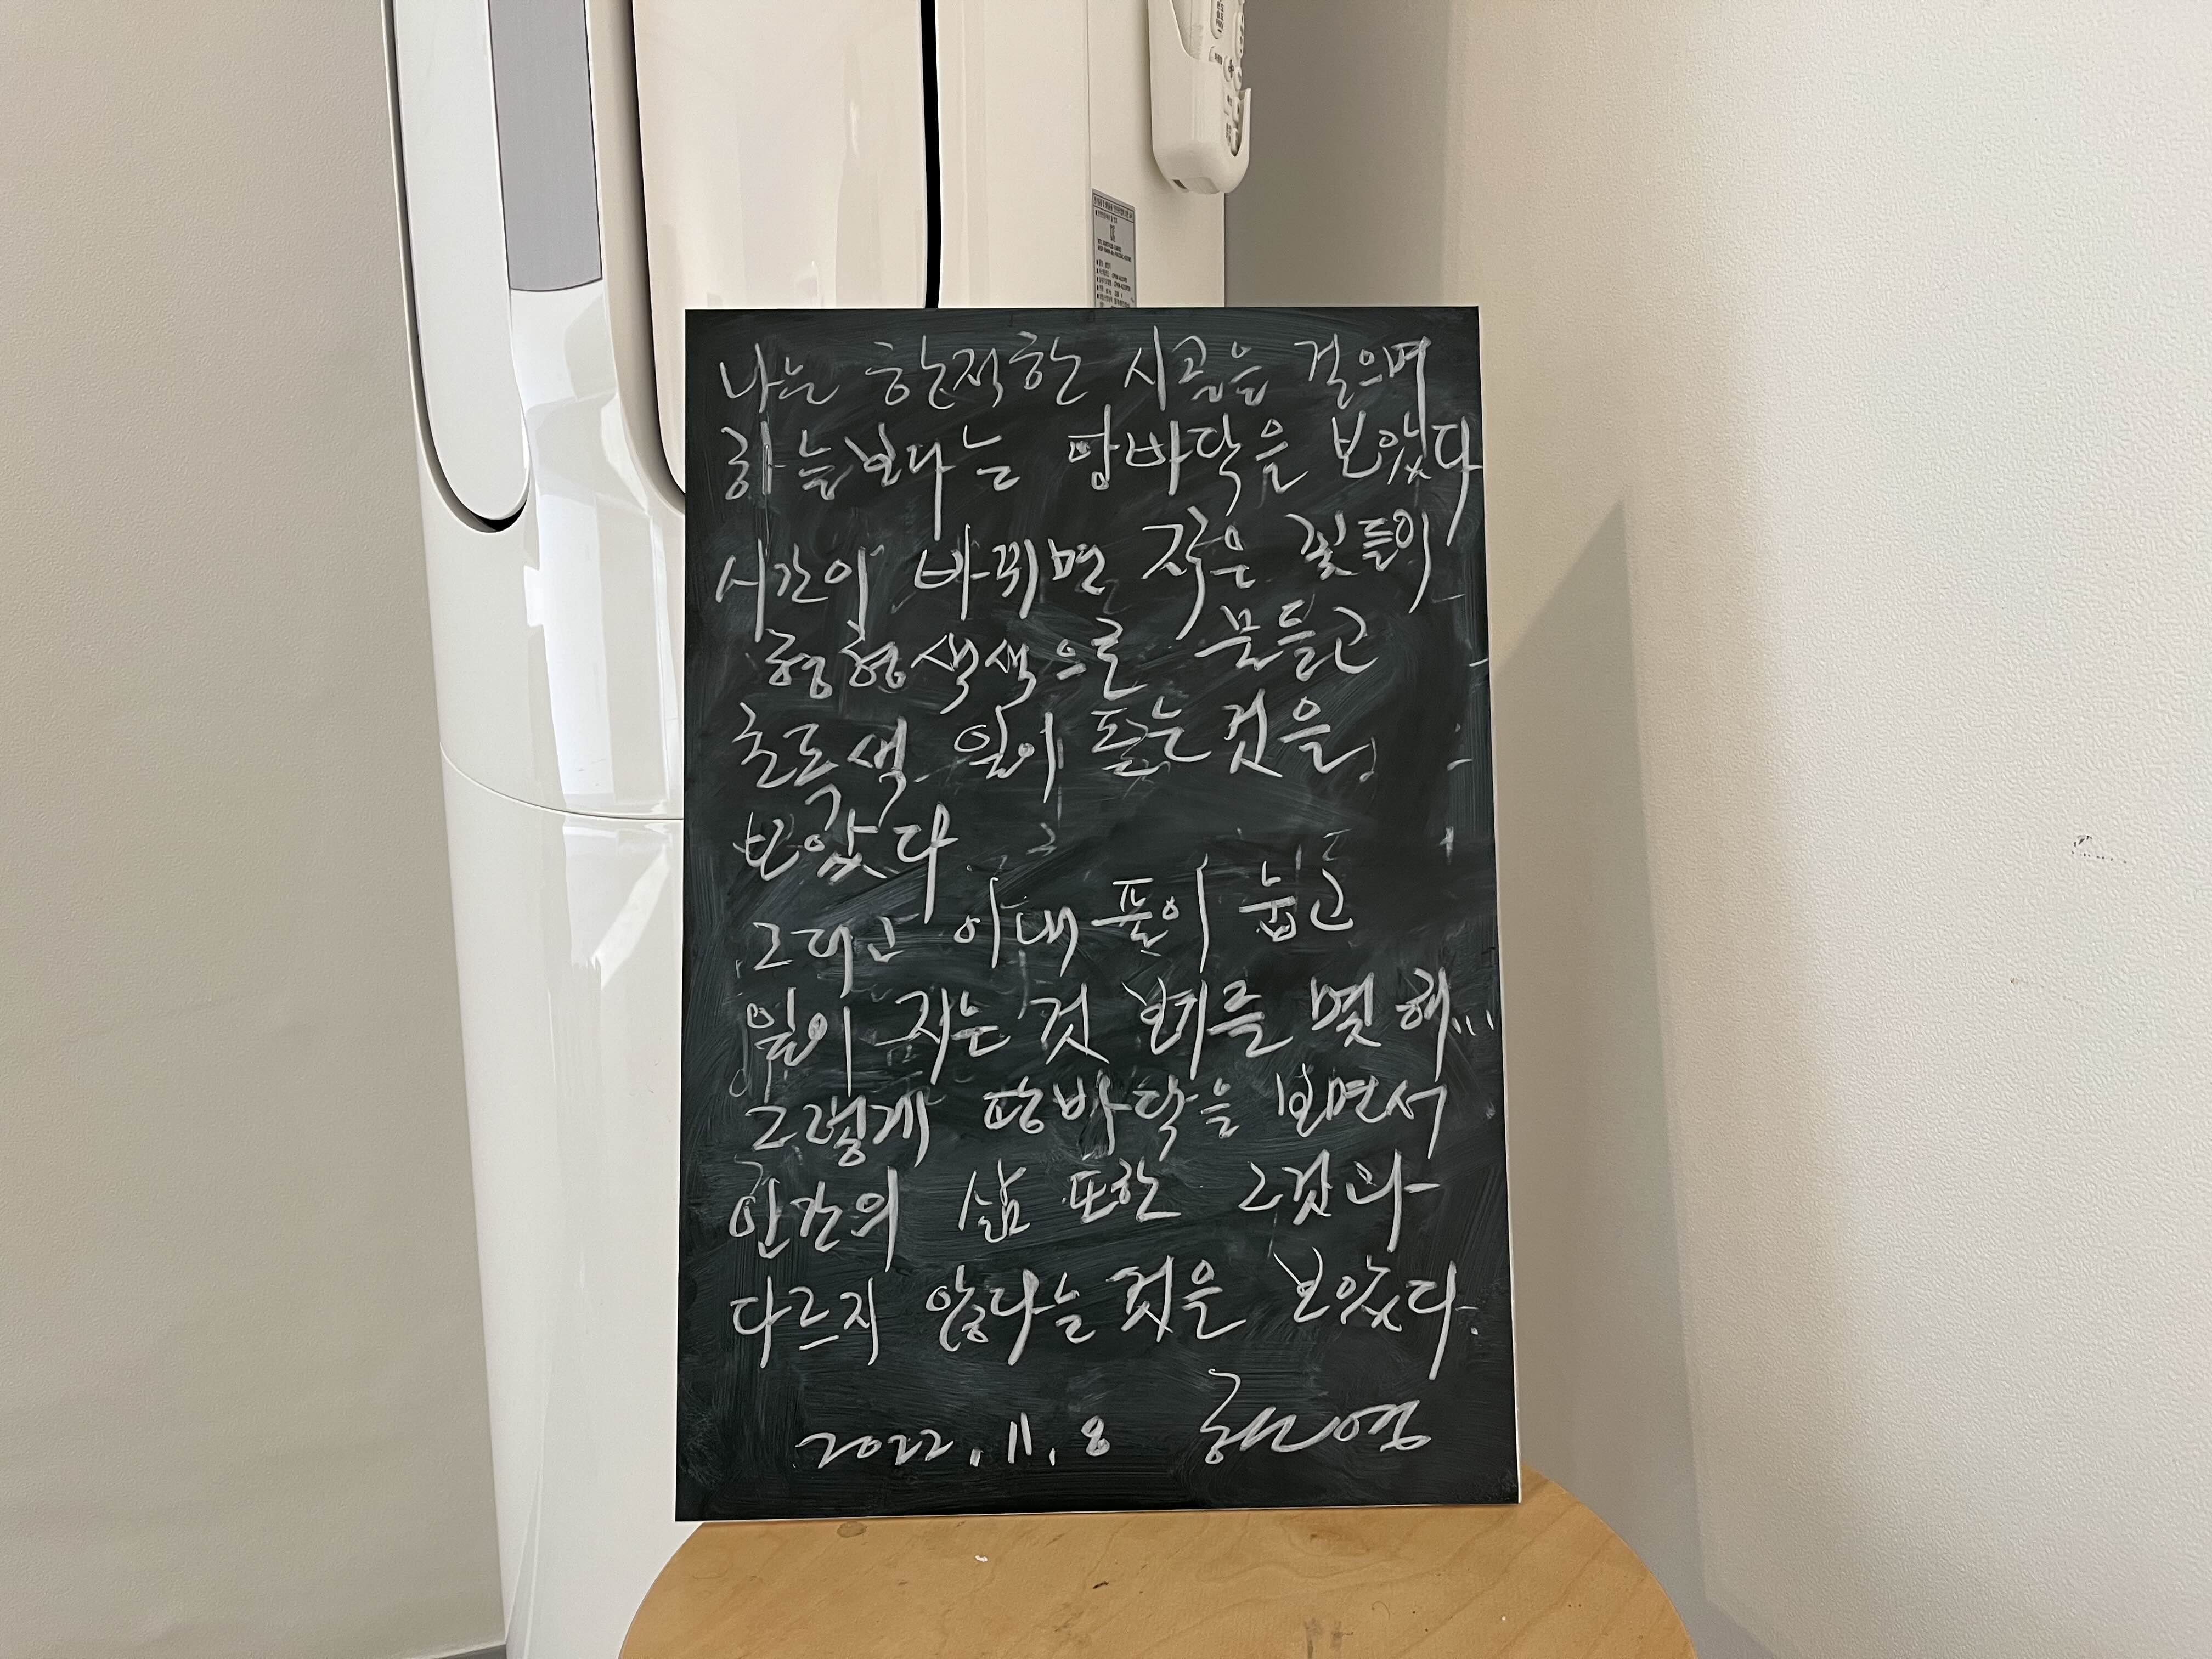 나는 한적한 시골을 걸으며
하늘보다는 땅바닥을 보았다
시간이 바뀌면 작은 꽃들이
형형색색으로 물들고
초록색 잎이 돋는것을
보았다
그리고 이내 풀이 눕고
잎이 지는 것 보기를 몇 해...
그렇게 땅바닥을 보면서
인간의 삶 또한 그것과
다르지 않다는 것을 보았다.
2022.11.8